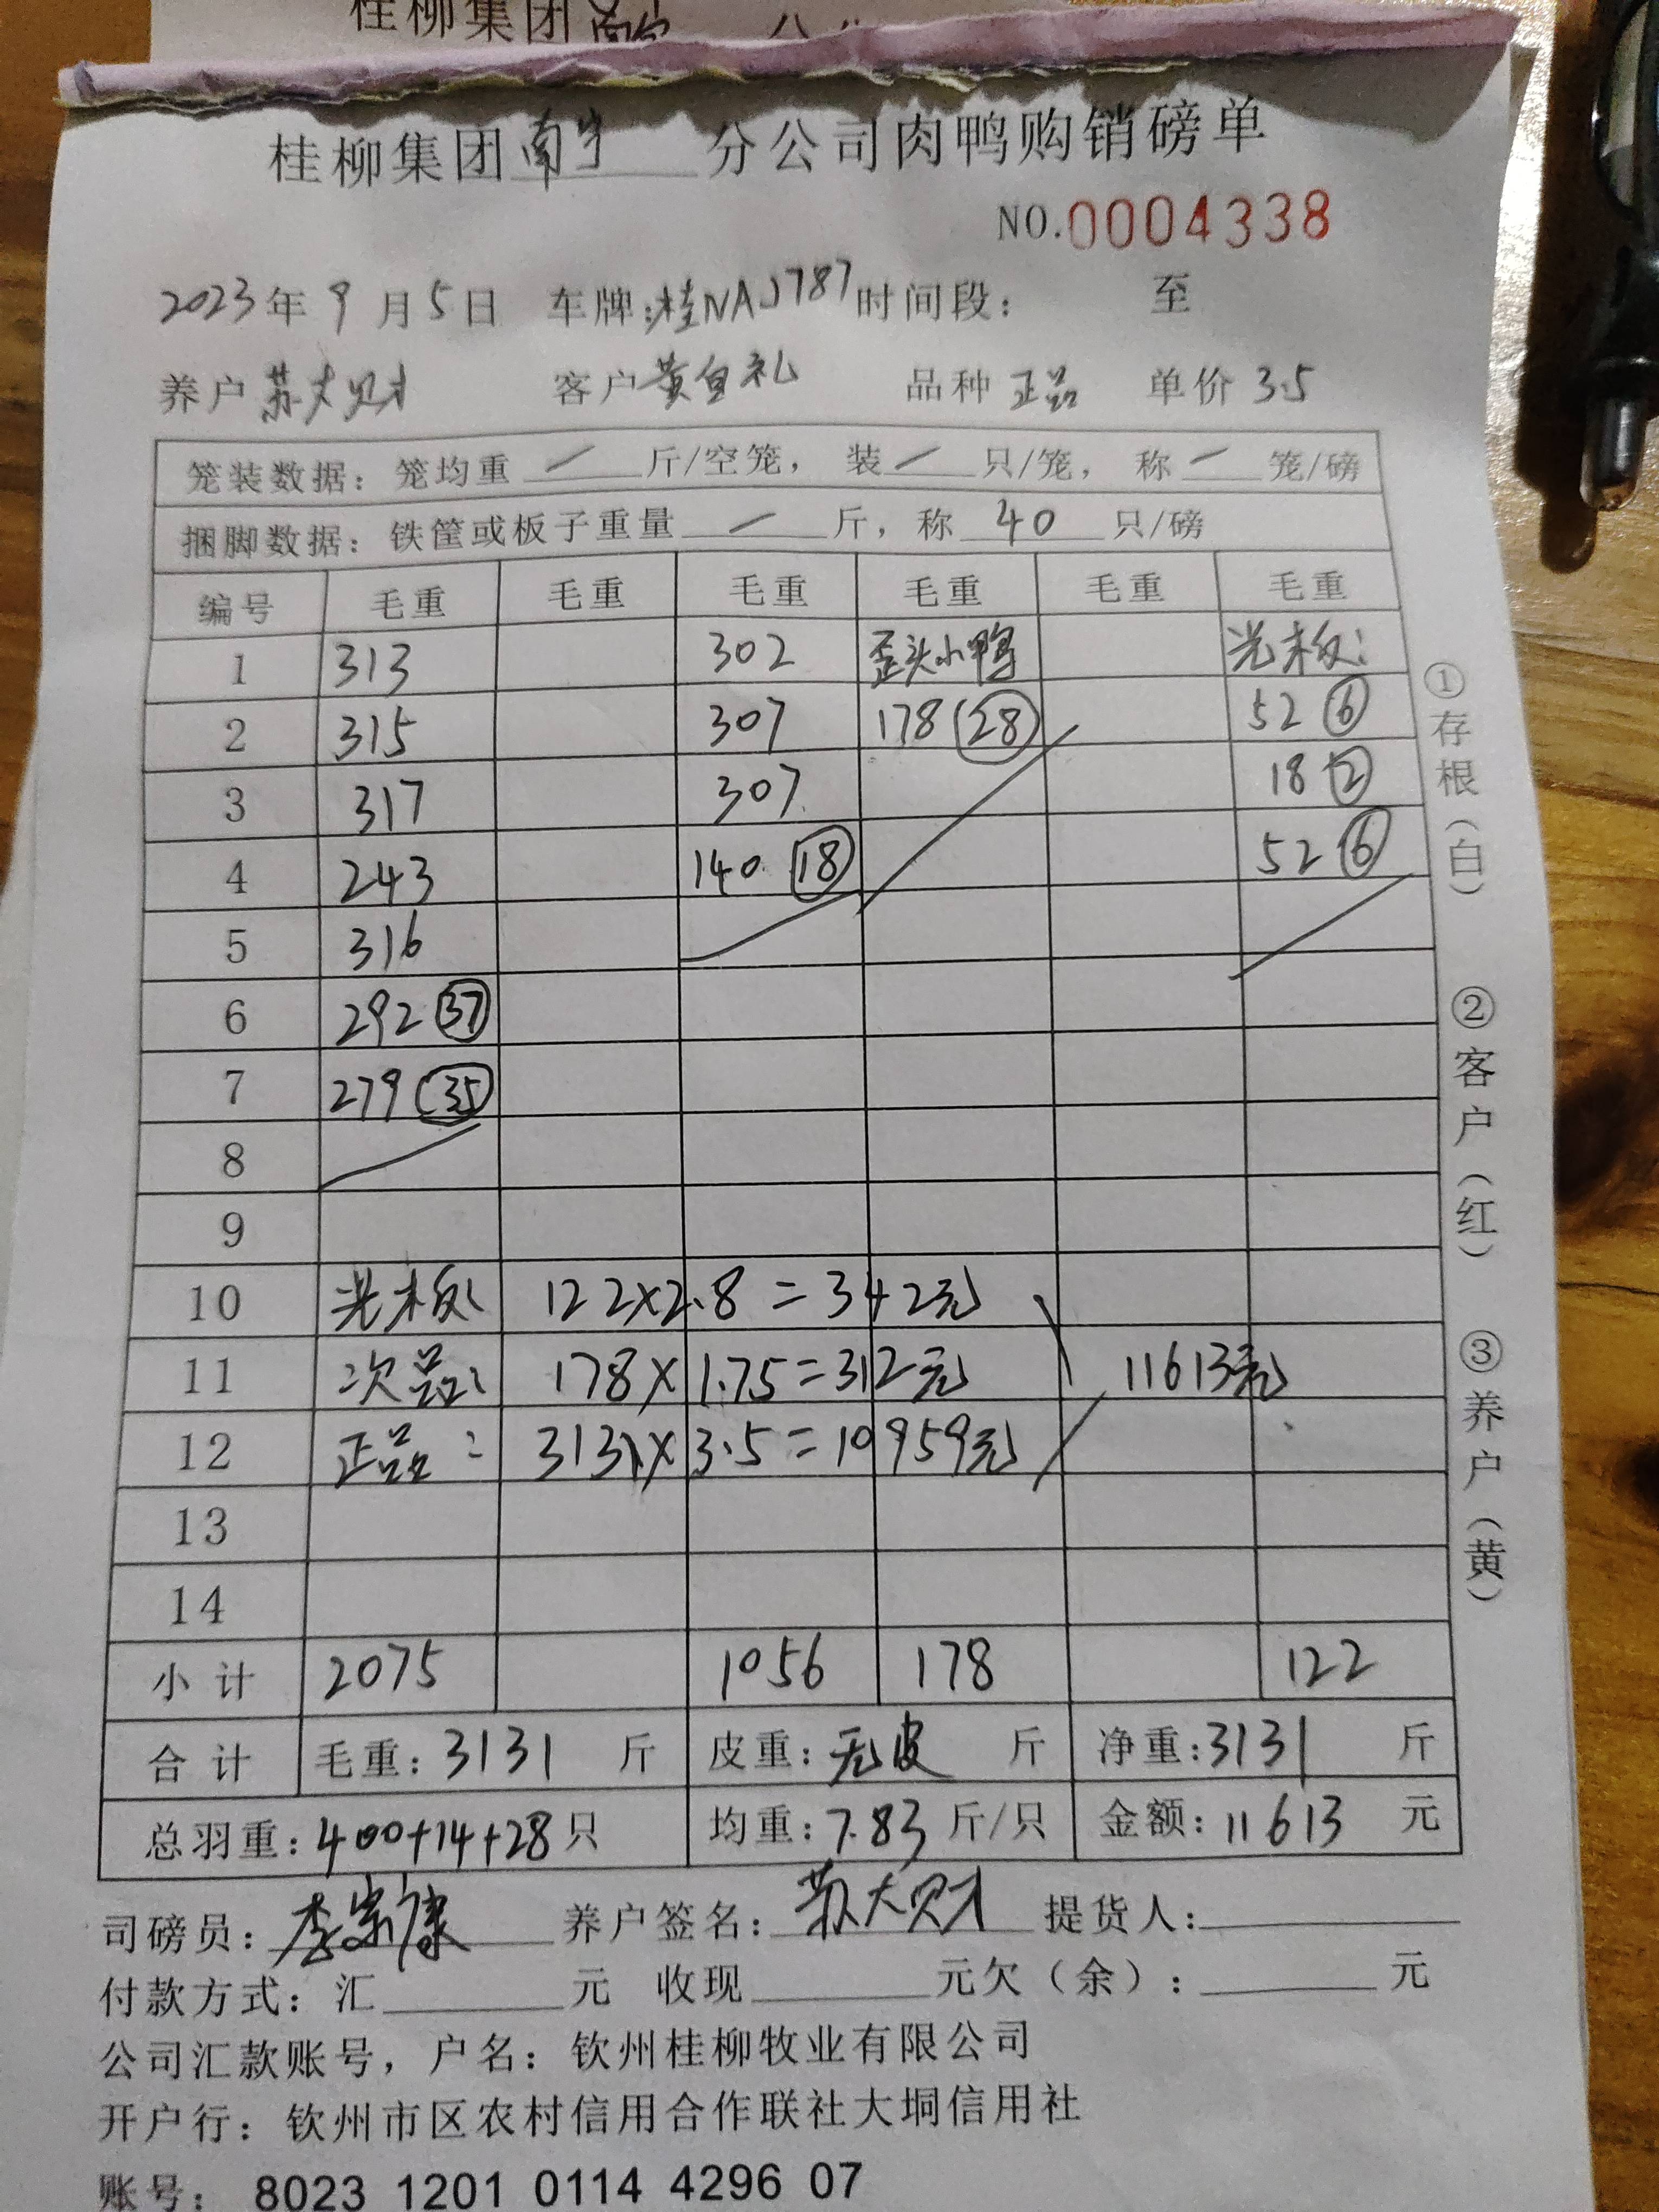 桂柳集团南宁 分公司肉鸭购销磅单
NO.0004338
2023年9月5日 车牌:桂NAJ787 时间段: 至
养户 苏大财 客户 黄自礼 品种 正品 单价 3.5
笼装数据: 笼均重 / 斤/空笼, 装 / 只/笼, 称 / 笼/磅
捆脚数据: 铁筐或板子重量 / 斤, 称 40 只/磅
编号 毛重 毛重 毛重 毛重 毛重 毛重
1 313 302 歪头小鸭 光板:
2 315 307 178 (28) 52 (6)
3 317 307 18 (2)
4 243 140 (18) 52 (6)
5 316
6 292 (37)
7 279 (35)
8
9
10 光板: 122×2.8=342元
11 次品: 178×1.75=312元 11613元
12 正品: 3131×3.5=10959元
13
14
小计 2075 1056 178 122
合计 毛重: 3131 斤 皮重: 无皮 斤 净重: 3131 斤
总羽重: 400+14+28只 均重: 7.83 斤/只 金额: 11613 元
司磅员: 李宗康 养户签名: 苏大财 提货人:
付款方式: 汇 元 收现 元欠(余): 元
公司汇款账号, 户名: 钦州桂柳牧业有限公司
开户行: 钦州市区农村信用合作联社大垌信用社
账号: 8023 1201 0114 4296 07
①存根(白) ②客户(红) ③养户(黄)